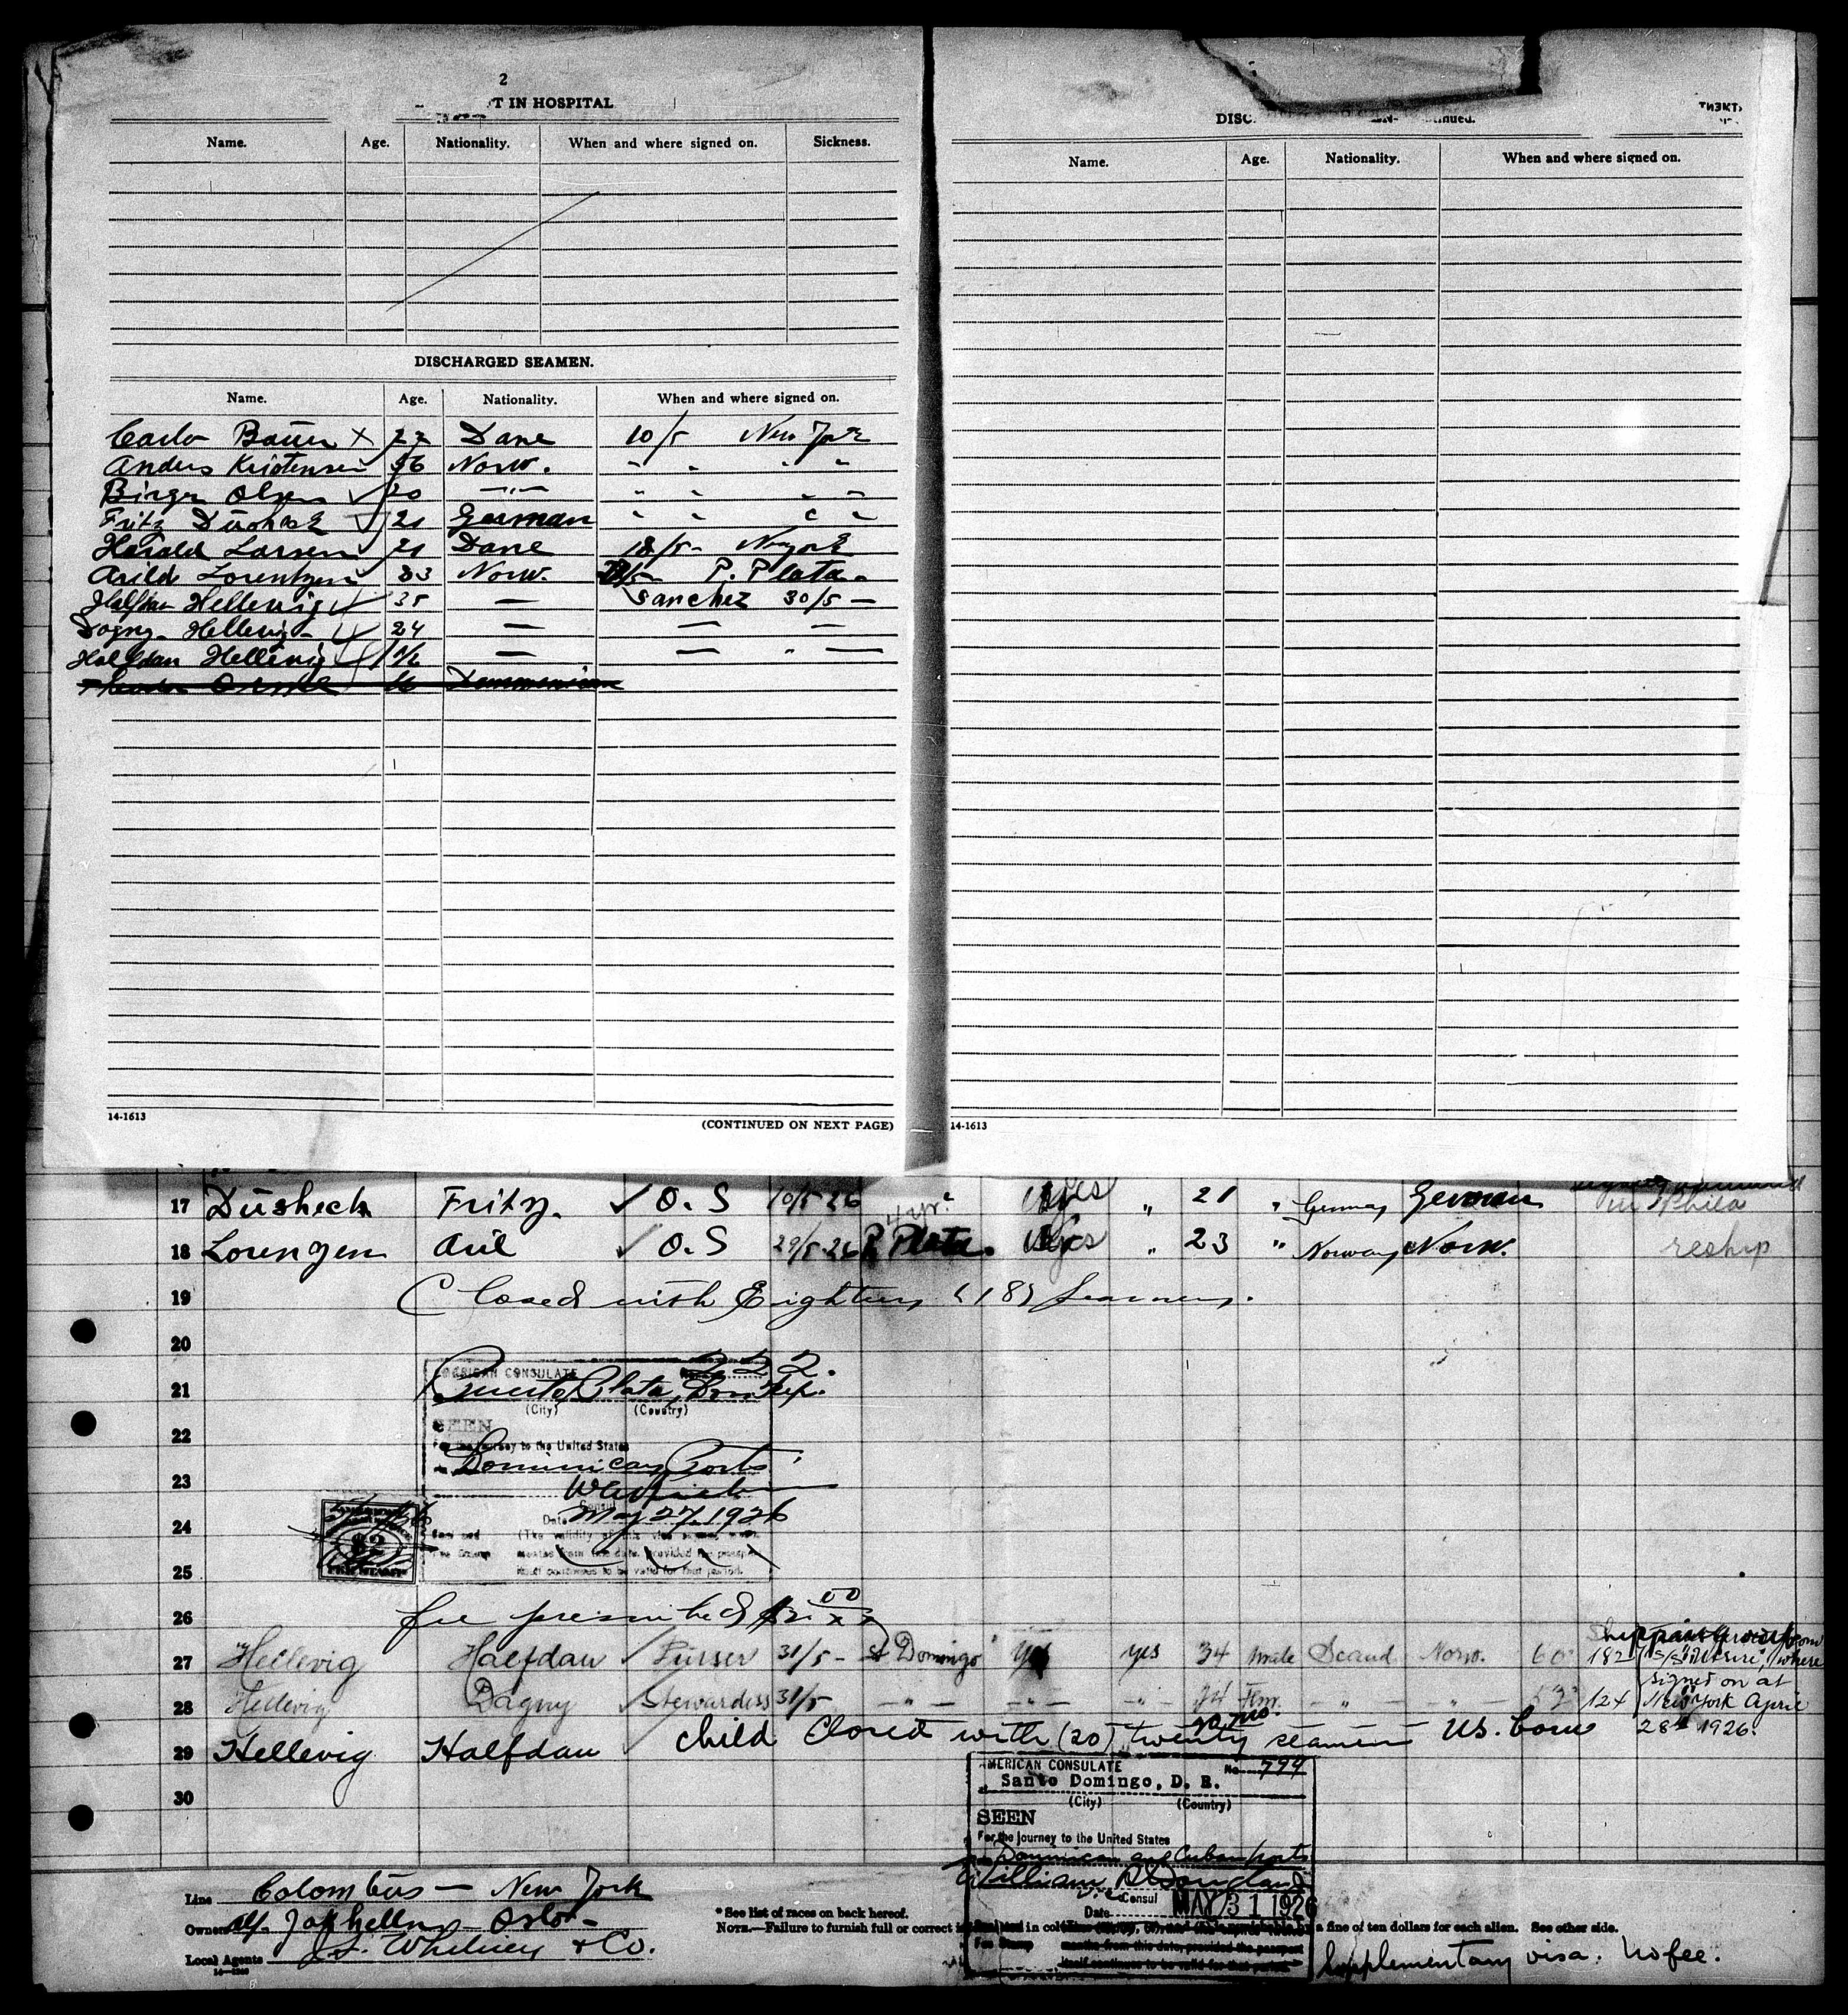 2
T IN HOSPITAL
Name. Age. Nationality. When and where signed on. Sickness.
DISCHARGED SEAMEN.
Name. Age. Nationality. When and where signed on.
Carlo Bauer X 22 Dane 10/5 New York
Anders Kristensen 56 Norw. " " " "
Birger Olsen 20 —"— " " " "
Fritz Düsheck 21 German " " " "
Harald Larsen 21 Dane 18/5- New York
Arild Lorentzen 23 Norw. 29/5- P. Plata.
Halfdan Hellevig 35 — Sanchez 30/5 —
Dagny Hellevig 24 — — —
Halfdan Hellevig — — " —
14-1613
(CONTINUED ON NEXT PAGE)
DISC. tinued.
Name. Age. Nationality. When and where signed on.
14-1613
17 Düsheck Fritz. ✓ O. S 10/5-26 4 yr. yes " 21 " Germany German in Phila
18 Lorengen Aril ✓ O. S 29/5-26 P. Plata. yes " 23 " Norway Norw. reship
19 Closed with Eighteen (18) seamen.
20
AMERICAN CONSULATE 222.
21 Puerto Plata, Dom. Rep.
(City) (Country)
SEEN
22
For the journey to the United States
Dominican Ports
23
Consul
Date May 27, 1926
24
$2
25
26 fee prescribed $2.00
27 Hellevig Halfdan ✓ Purser 31/5- St Domingo yes yes 34 male Scand Norw. 182
where
signed on at
28 Hellevig Dagny ✓ Stewardess 31/5 —"— —"— —"— 24 Fem. —"— —"— 124 New York April
29 Hellevig Halfdan ✓ child Closed with (20) twenty seamen US. born 28th 1926.
30
AMERICAN CONSULATE No. 799
Santo Domingo, D. R.
(City) (Country)
SEEN
For the journey to the United States
Dominican and Cuban ports
William
Vice Consul
Date MAY 31 1926
Fee Stamp months from this date, provided the passport
itself continues to be valid for that period.
Line Colombus — New York
Owners
Oslo-
Local Agents J. F. Whitney & Co.
* See list of races on back hereof.
NOTE.—Failure to furnish full or correct
a fine of ten dollars for each alien. See other side.
Supplementary visa. No fee.